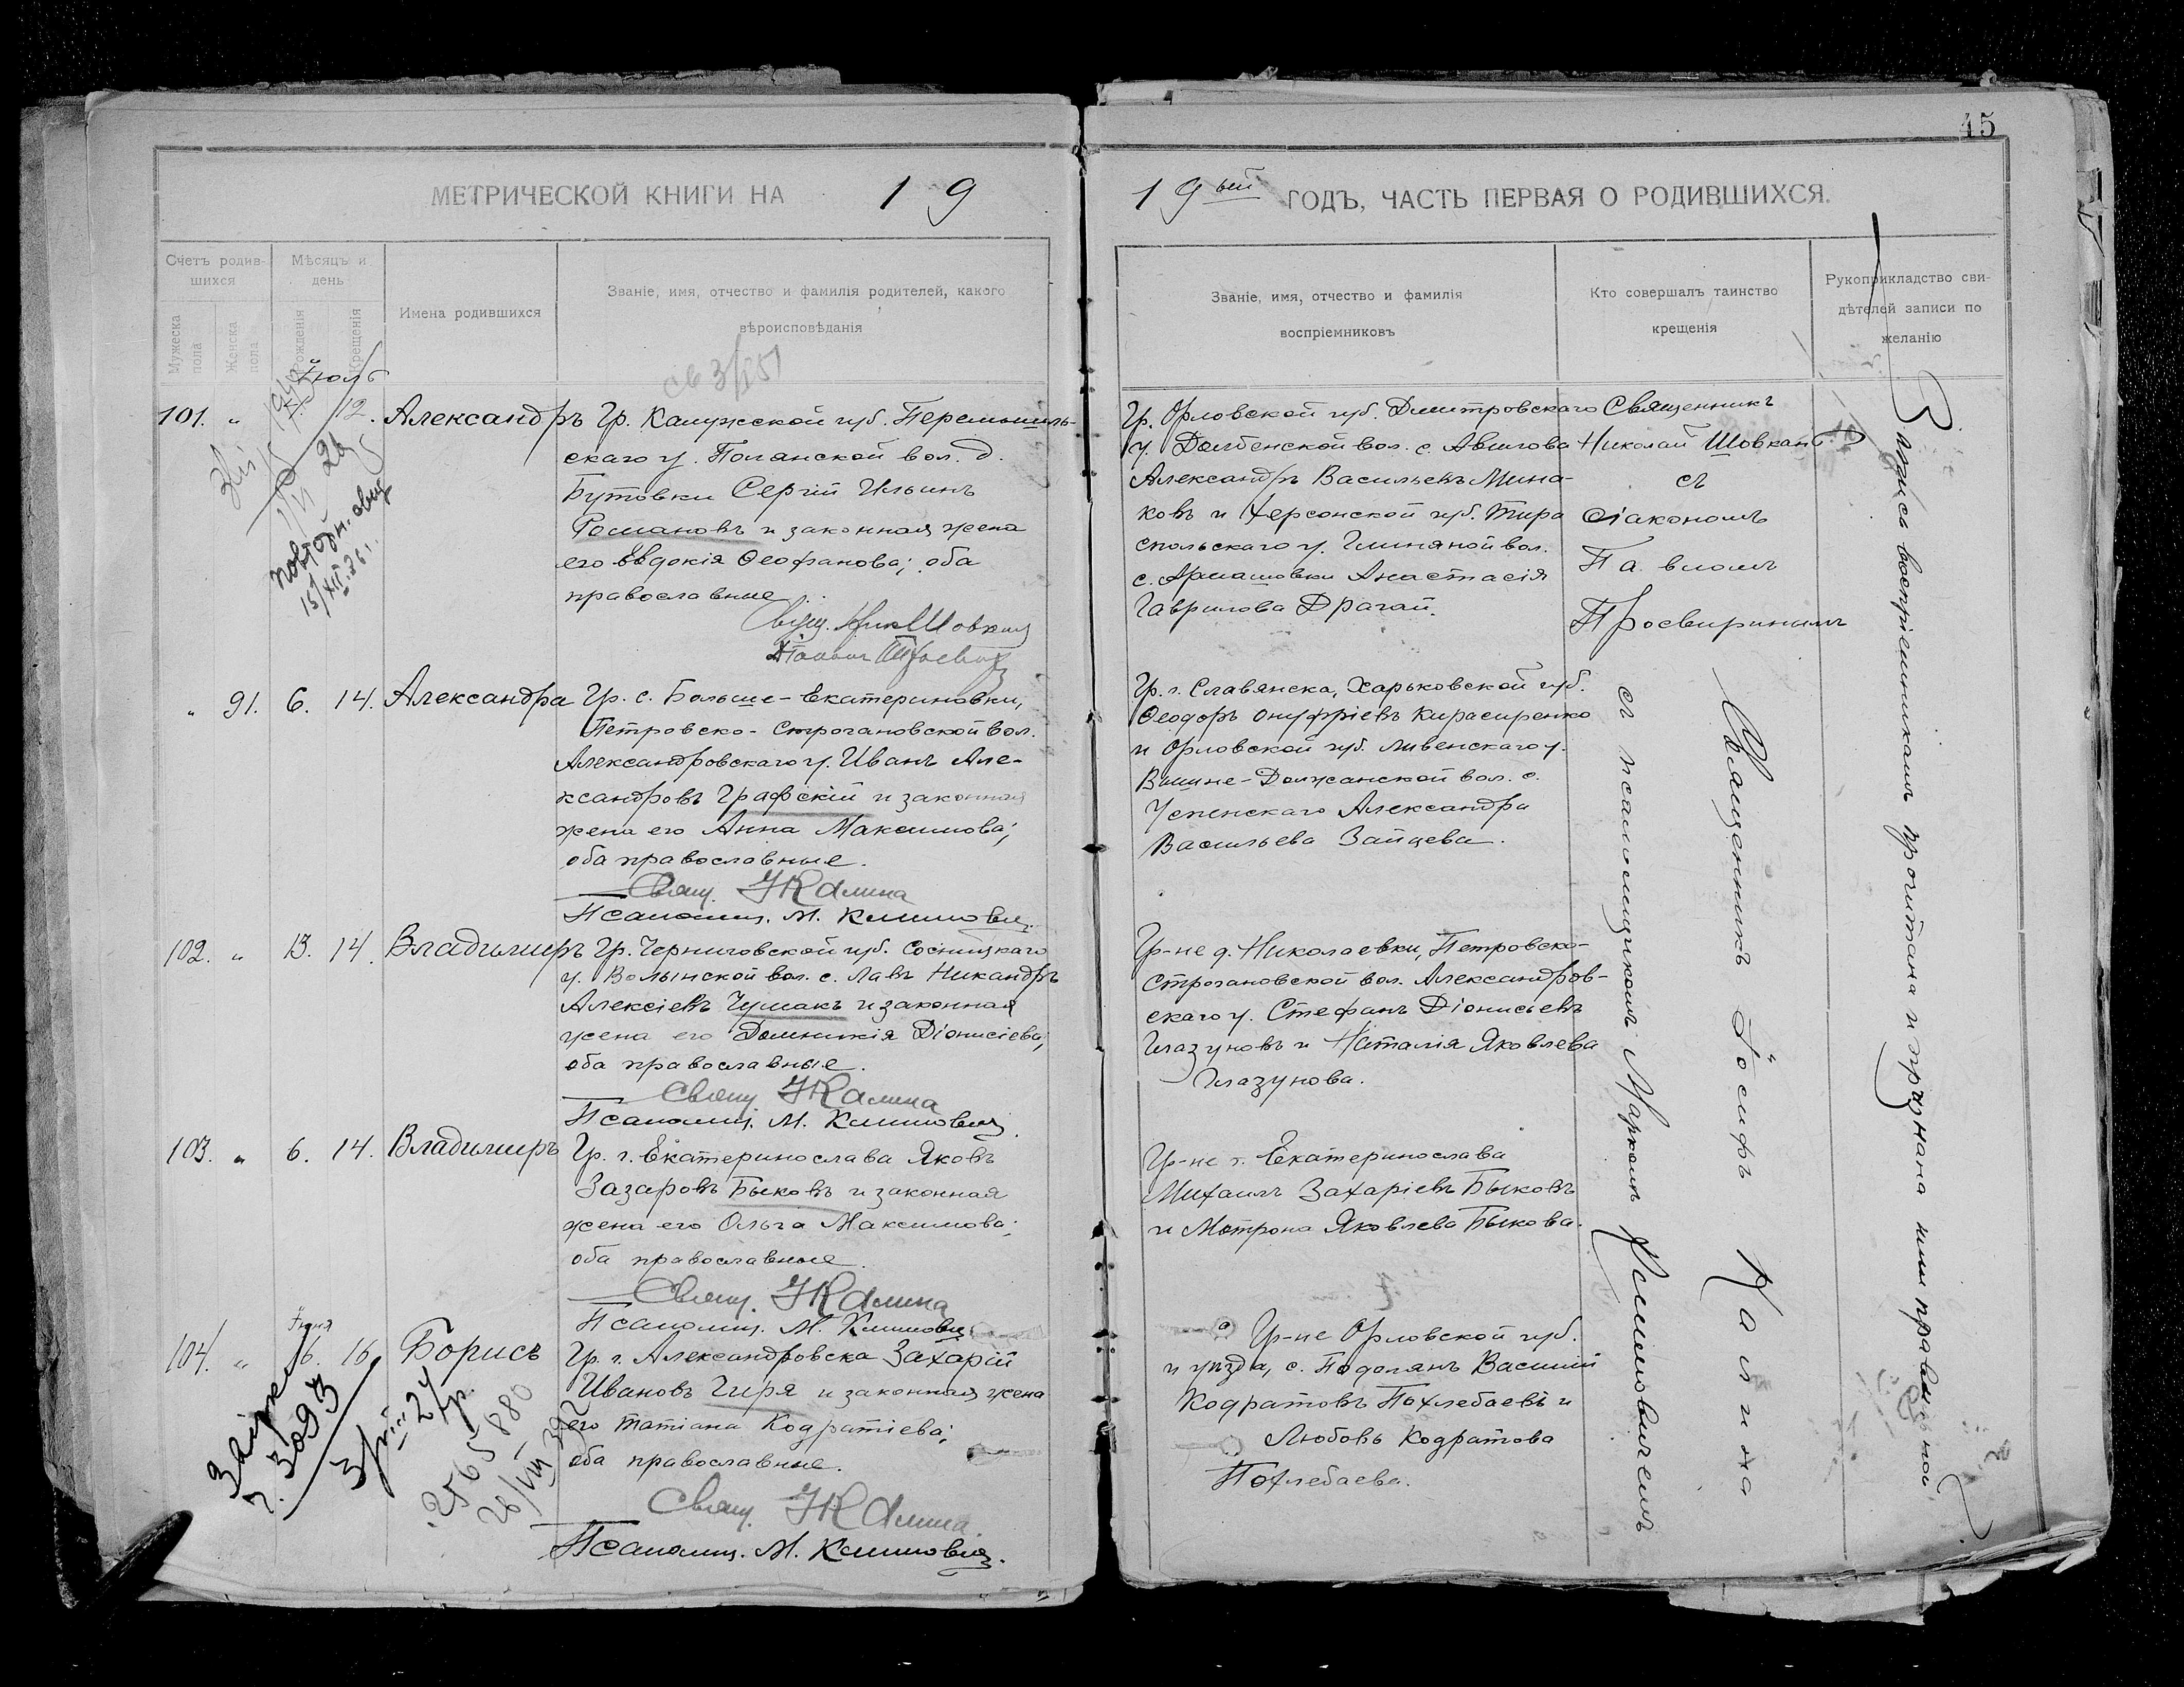 45
МЕТРИЧЕСКОЙ КНИГИ НА 19
19ый ГОДЪ, ЧАСТЬ ПЕРВАЯ О РОДИВШИХСЯ.
Счетъ родив-
шихся
Мужеска пола
Женска пола
Мѣсяцъ и
день
Рожденія
Крещенія
Имена родившихся
Званіе, имя, отчество и фамилія родителей, какого
вѣроисповѣданія
Званіе, имя, отчество и фамилія
воспріемниковъ
Кто совершалъ таинство
крещенія
Рукоприкладство сви-
дѣтелей записи по
желанію
Іюль
101. " 12. Александръ
Гр. Калужской губ. Перемышль-
скаго у. Поганской вол. д.
Бутовки Сергій Ильинъ
Романовъ и законная жена
его Евдокія Ѳеофанова; оба
православные
Свящ. Ник Шовкан
Гр. Орловской губ. Дмитровскаго
у. Долбенской вол. с. Авилова
Александръ Васильевъ Мина-
ковъ и Херсонской губ. Тира
спольскаго у. Глиняной вол.
с. Армашовки Анастасія
Гаврилова Драган.
Священникъ
Николай Шовкан
съ
діакономъ
Павломъ
Просвиринымъ
повторн. свид
15/XII. 36 г.
" 91. 6. 14. Александра
Гр. с. Больше-Екатериновки,
Петровско-Строгановской вол.
Александровскаго у. Иванъ Але-
ксандровъ Графскій и законная
жена его Анна Максимова;
оба православные.
Свящ. І Калина
Псаломщ. М. Климович
Гр. г. Славянска, Харьковской губ.
Ѳеодоръ Онуфріевъ Кирасиренко
и Орловской губ. Ливенскаго у.
Вышне-Должанской вол. с.
Успенскаго Александра
Васильева Зайцева.
102. " 13. 14. Владимиръ
Гр. Черниговской губ. Сосницкаго
у. Волынской вол. с. Лавъ Никандръ
Алексіевъ Чумакъ и законная
жена его Домникія Діонисіева;
оба православные.
Свящ І Калина
Псаломщ. М. Климович
Гр-не д. Николаевки, Петровско-
Строгановской вол. Александров-
скаго у. Стефанъ Діонисіевъ
Глазуновъ и Наталія Яковлева
Глазунова.
103. " 6. 14. Владимиръ
Гр. г. Екатеринослава Яковъ
Захаровъ Быковъ и законная
жена его Ольга Максимова;
оба православные.
Свящ. І Калина
Псаломщ. М. Климович
Гр-не г. Екатеринослава
Михаилъ Захаріевъ Быковъ
и Мотрона Яковлева Быкова.
Іюня
104. " 16. Борисъ
Гр. г. Александровска Захарій
Ивановъ Гиря и законная жена
его Татіана Кодратіева;
оба православные.
Свящ. І Калина.
Псаломщ. М. Климович.
Гр-не Орловской губ.
и уѣзда, с. Подолянъ Василій
Кодратовъ Похлебаевъ и
Любовь Кодратова
Похлебаева.
ч. 3093
Священникъ Іосифъ Калина
съ псаломщикомъ Маркомъ Климовичемъ
Запись воспріемникамъ прочитана и признана ими правильной